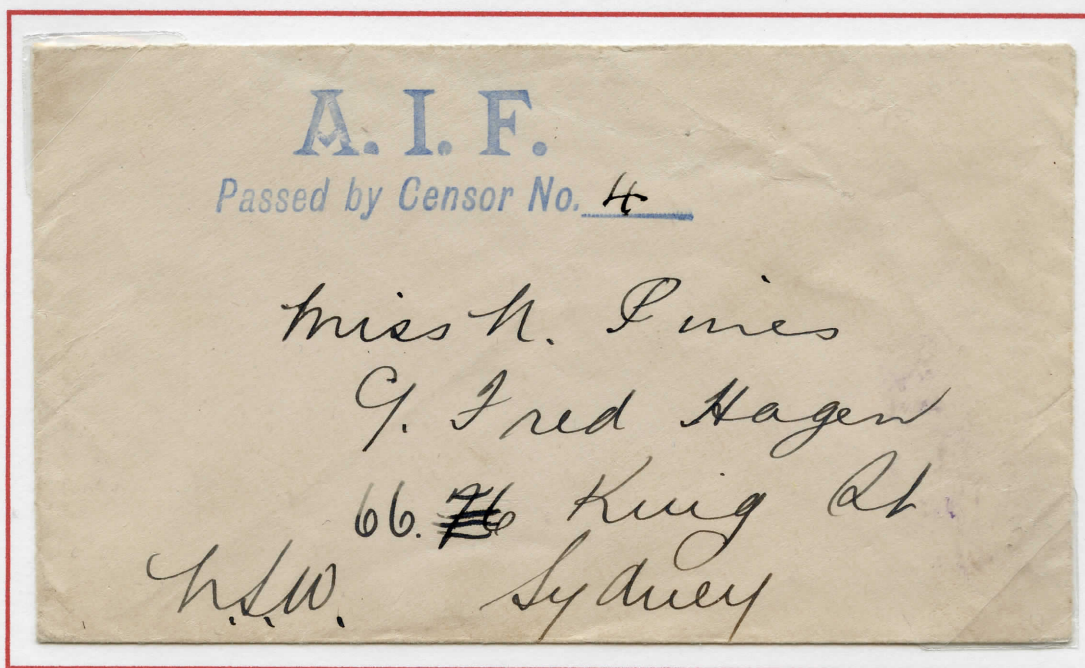 A. I. F.
Passed by Censor No. 4
Miss N. Pines
C/. Fred Hagen
66. 76 King St
Sydney
N.S.W.